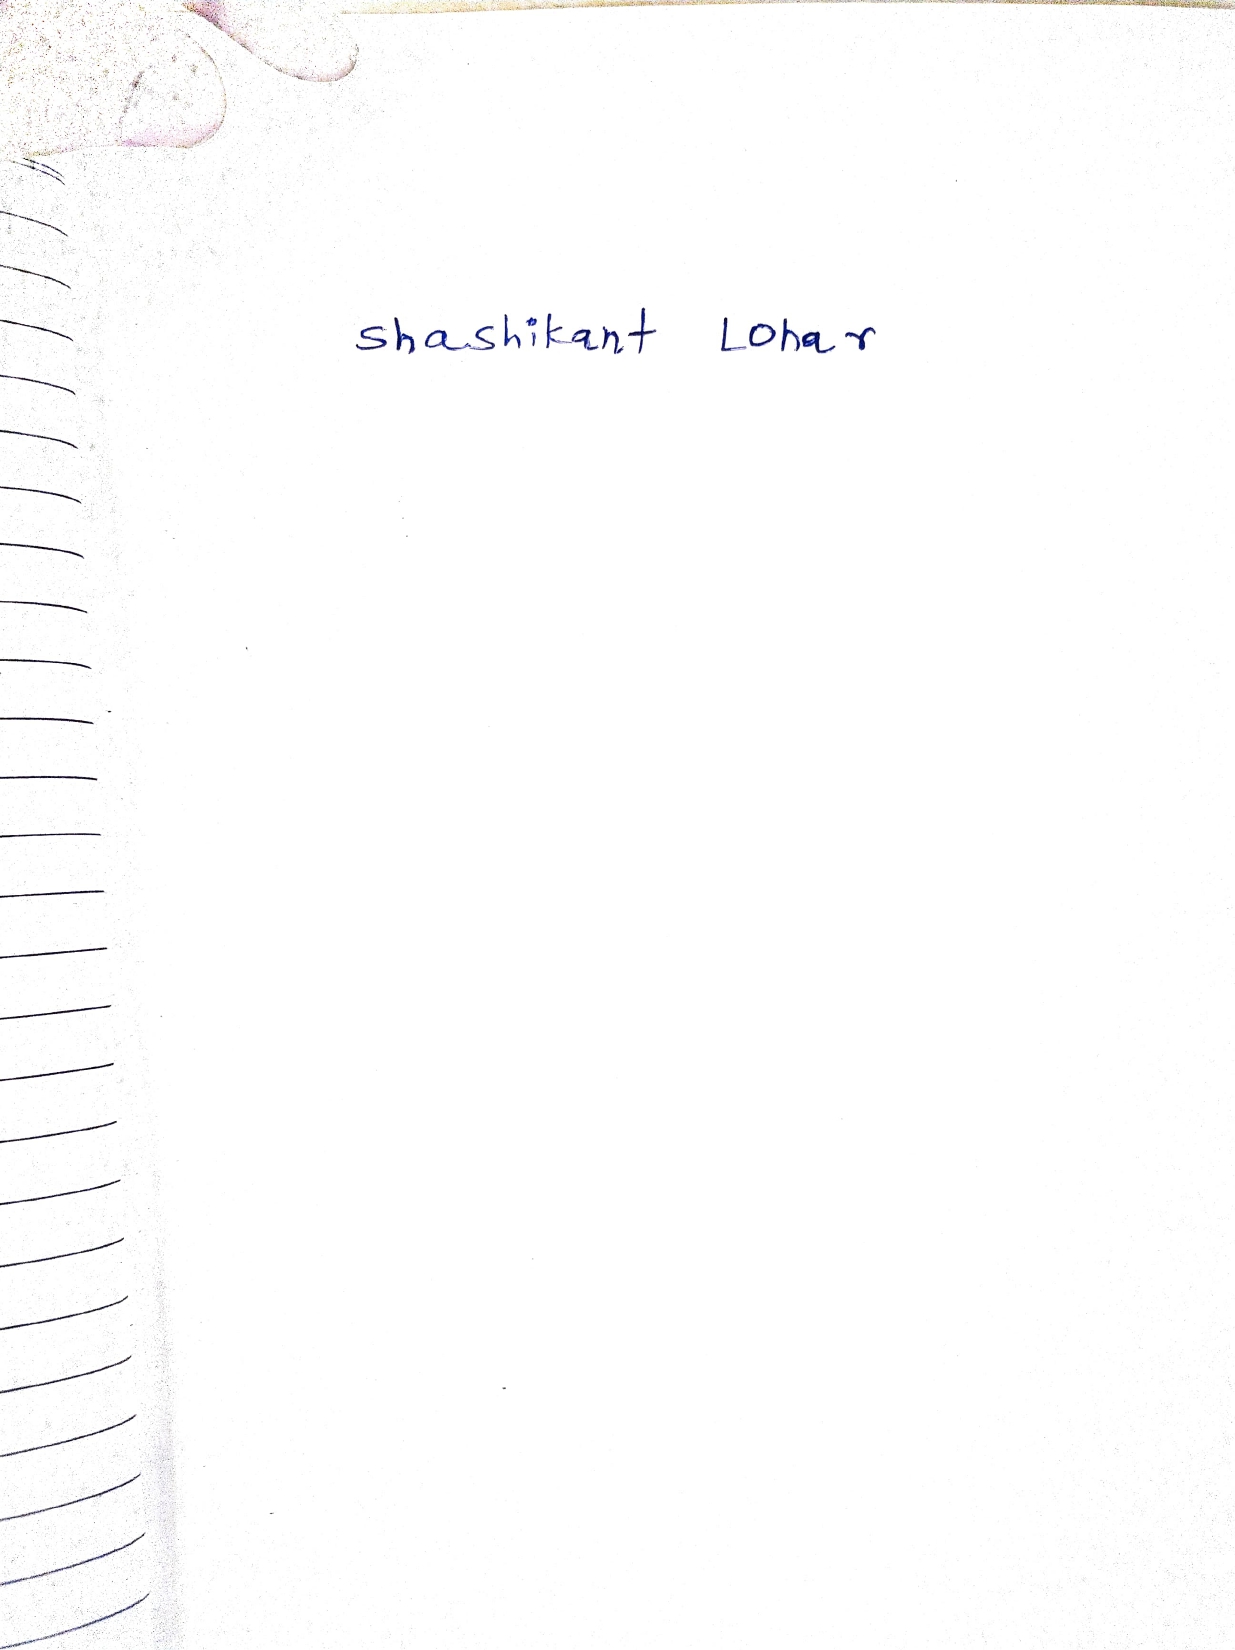 shashikant Lohar